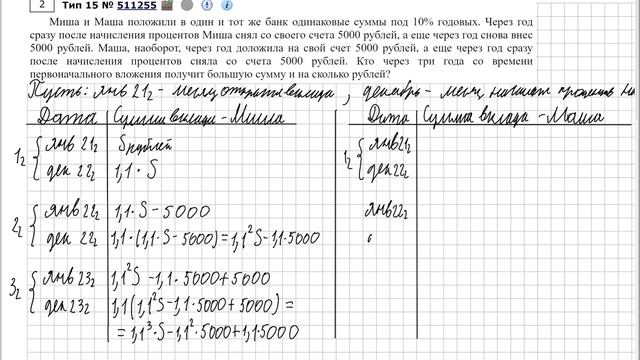 2 Тип 15 № 511255
Миша и Маша положили в один и тот же банк одинаковые суммы под 10% годовых. Через год
сразу после начисления процентов Миша снял со своего счета 5000 рублей, а еще через год снова внес
5000 рублей. Маша, наоборот, через год доложила на свой счет 5000 рублей, а еще через год сразу
после начисления процентов сняла со счета 5000 рублей. Кто через три года со времени
первоначального вложения получит большую сумму и на сколько рублей?
Пусть: янв 21г - месяц открытия вклада, декабрь - месяц начисл процентов на
Дата Сумма вклада - Миша
1г янв 21г S рублей
дек 22г 1,1·S
2г янв 22г 1,1·S-5000
дек 22г 1,1·(1,1·S-5000)=1,1²S-1,1·5000
3г янв 23г 1,1²S-1,1·5000+5000
дек 23г 1,1(1,1²S-1,1·5000+5000)=
=1,1³·S-1,1²·5000+1,1·5000
Дата Сумма вклада - Маша
1г янв 21г
дек 22г
янв 22г